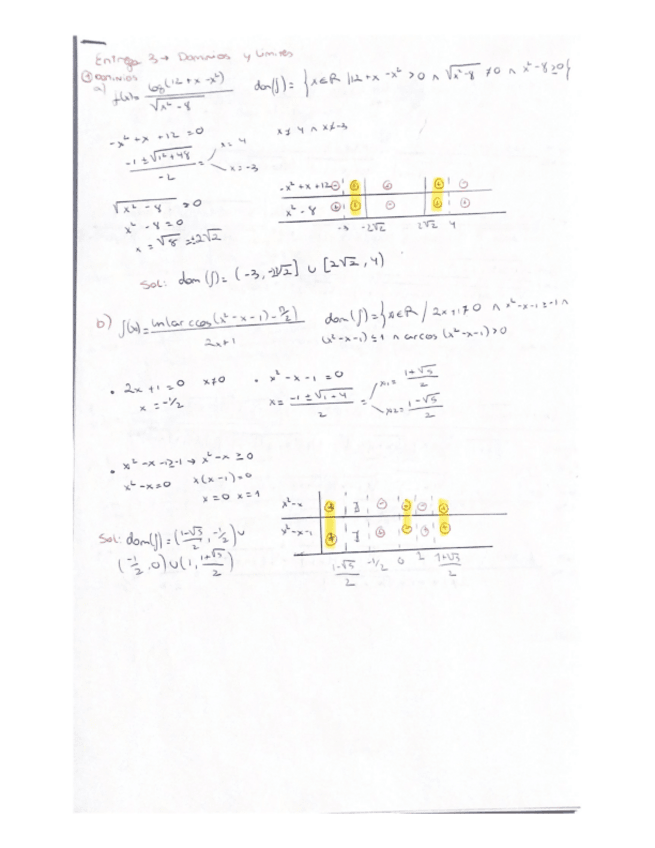 Entrega 3 → Dominios y Límites
① Dominios
a) f(x) = log(12 + x - x²) / √(x² - 8)    dom(f) = { x∈R | 12 + x - x² > 0 ∧ √(x² - 8) ≠ 0 ∧ x² - 8 ≥ 0 }
-x² + x + 12 = 0    x ≠ 4 ∧ x ≠ -3
(-1 ± √(1² + 48)) / -2 =    x = 4
x = -3
√(x² - 8) ≠ 0
x² - 8 = 0
x = √8 = ±2√2
-x² + x + 12    -    +    +    +    -
x² - 8    +    +    -    +    +
-3    -2√2    2√2    4
Sol: dom(f) = (-3, -2√2] ∪ [2√2, 4)
b) f(x) = ln(arccos(x² - x - 1) - π/2) / 2x+1    dom(f) = { x∈R / 2x+1 ≠ 0 ∧ x² - x - 1 ≥ -1 ∧
(x² - x - 1) ≤ 1 ∧ arcos (x² - x - 1) > 0
• 2x + 1 = 0    x ≠ 0    • x² - x - 1 = 0
x = -1/2    x = (-1 ± √(1 - 4)) / 2 =    x₁ = (1+√5)/2
x₂ = (1-√5)/2
• x² - x - 1 ≥ -1 → x² - x ≥ 0
x² - x = 0    x(x - 1) = 0
x = 0    x = 1
x² - x
x² - x - 1
(1-√5)/2    -1/2    0    1    (1+√5)/2
Sol: dom(f) = ((1-√5)/2, -1/2) ∪
(-1/2, 0) ∪ (1, (1+√5)/2)